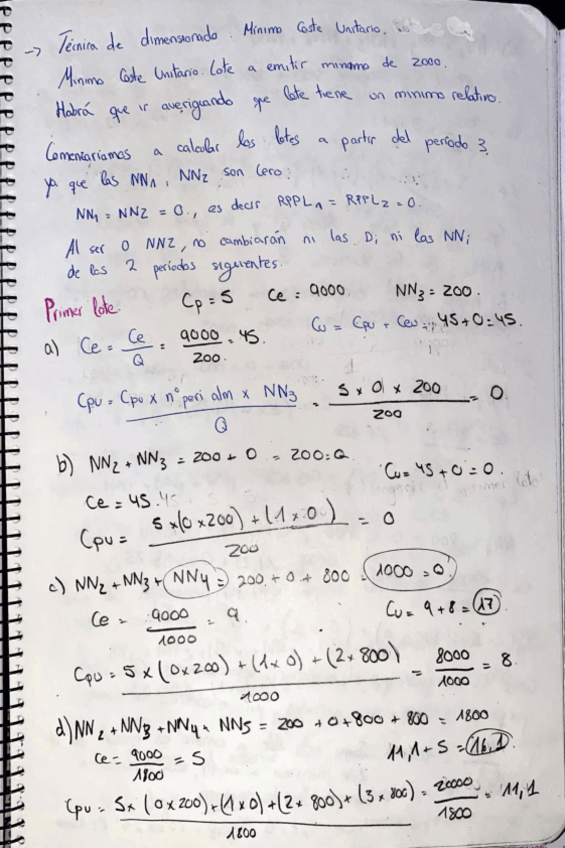 → Técnica de dimensionado: Mínimo Coste Unitario.
Mínimo Coste Unitario. Lote a emitir mínimo de 2000.
Habrá que ir averiguando que lote tiene un mínimo relativo.
Comenzaríamos a calcular los lotes a partir del período 3,
ya que las NN1, NN2 son cero:
NN1 = NN2 = 0., es decir RPPL1 = RPPL2 = 0.
Al ser 0 NN2, no cambiarán ni las Di ni las NNi
de los 2 períodos siguientes.
Primer lote. Cp = 5 Ce = 9000 NN3 = 200.
a) Ce = Ce/Q = 9000/200. = 45. Cu = Cpu + Ceu = 45+0 = 45.
Cpu = Cpu x nº peri alm x NN3 / Q = 5 x 0 x 200 / 200 = 0.
b) NN2 + NN3 = 200 + 0 = 200 = Q. Cu = 45 + 0 = 0.
Ce = 45.
Cpu = 5 x (0 x 200) + (1 x 0) / 200 = 0
c) NN2 + NN3 + NN4 = 200 + 0 + 800 = 1000 = 0.
Ce = 9000/1000 = 9 Cu = 9 + 8 = 17.
Cpu = 5 x (0 x 200) + (1 x 0) + (2 x 800) / 1000 = 8000/1000 = 8.
d) NN2 + NN3 + NN4 + NN5 = 200 + 0 + 800 + 800 = 1800
Ce = 9000/1800 = 5 11,1 + 5 = 16,1.
Cpu = 5 x (0 x 200) + (1 x 0) + (2 x 800) + (3 x 800) / 1800 = 20000/1800 = 11,1